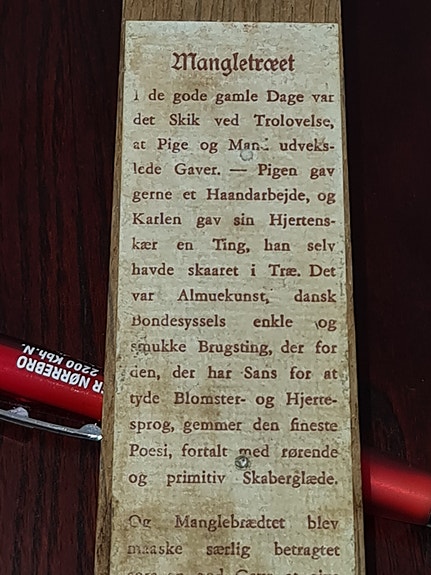 Mangletræet
I de gode gamle Dage var
det Skik ved Trolovelse,
at Pige og Mand udveks-
lede Gaver. — Pigen gav
gerne et Haandarbejde, og
Karlen gav sin Hjertens-
kær en Ting, han selv
havde skaaret i Træ. Det
var Almuekunst, dansk
Bondesyssels enkle og
smukke Brugsting, der for
den, der har Sans for at
tyde Blomster- og Hjerte-
sprog, gemmer den fineste
Poesi, fortalt med rørende
og primitiv Skaberglæde.
Og Manglebrædtet blev
maaske særlig betragtet
ER NØRREBRO
2200 Kbh.N.